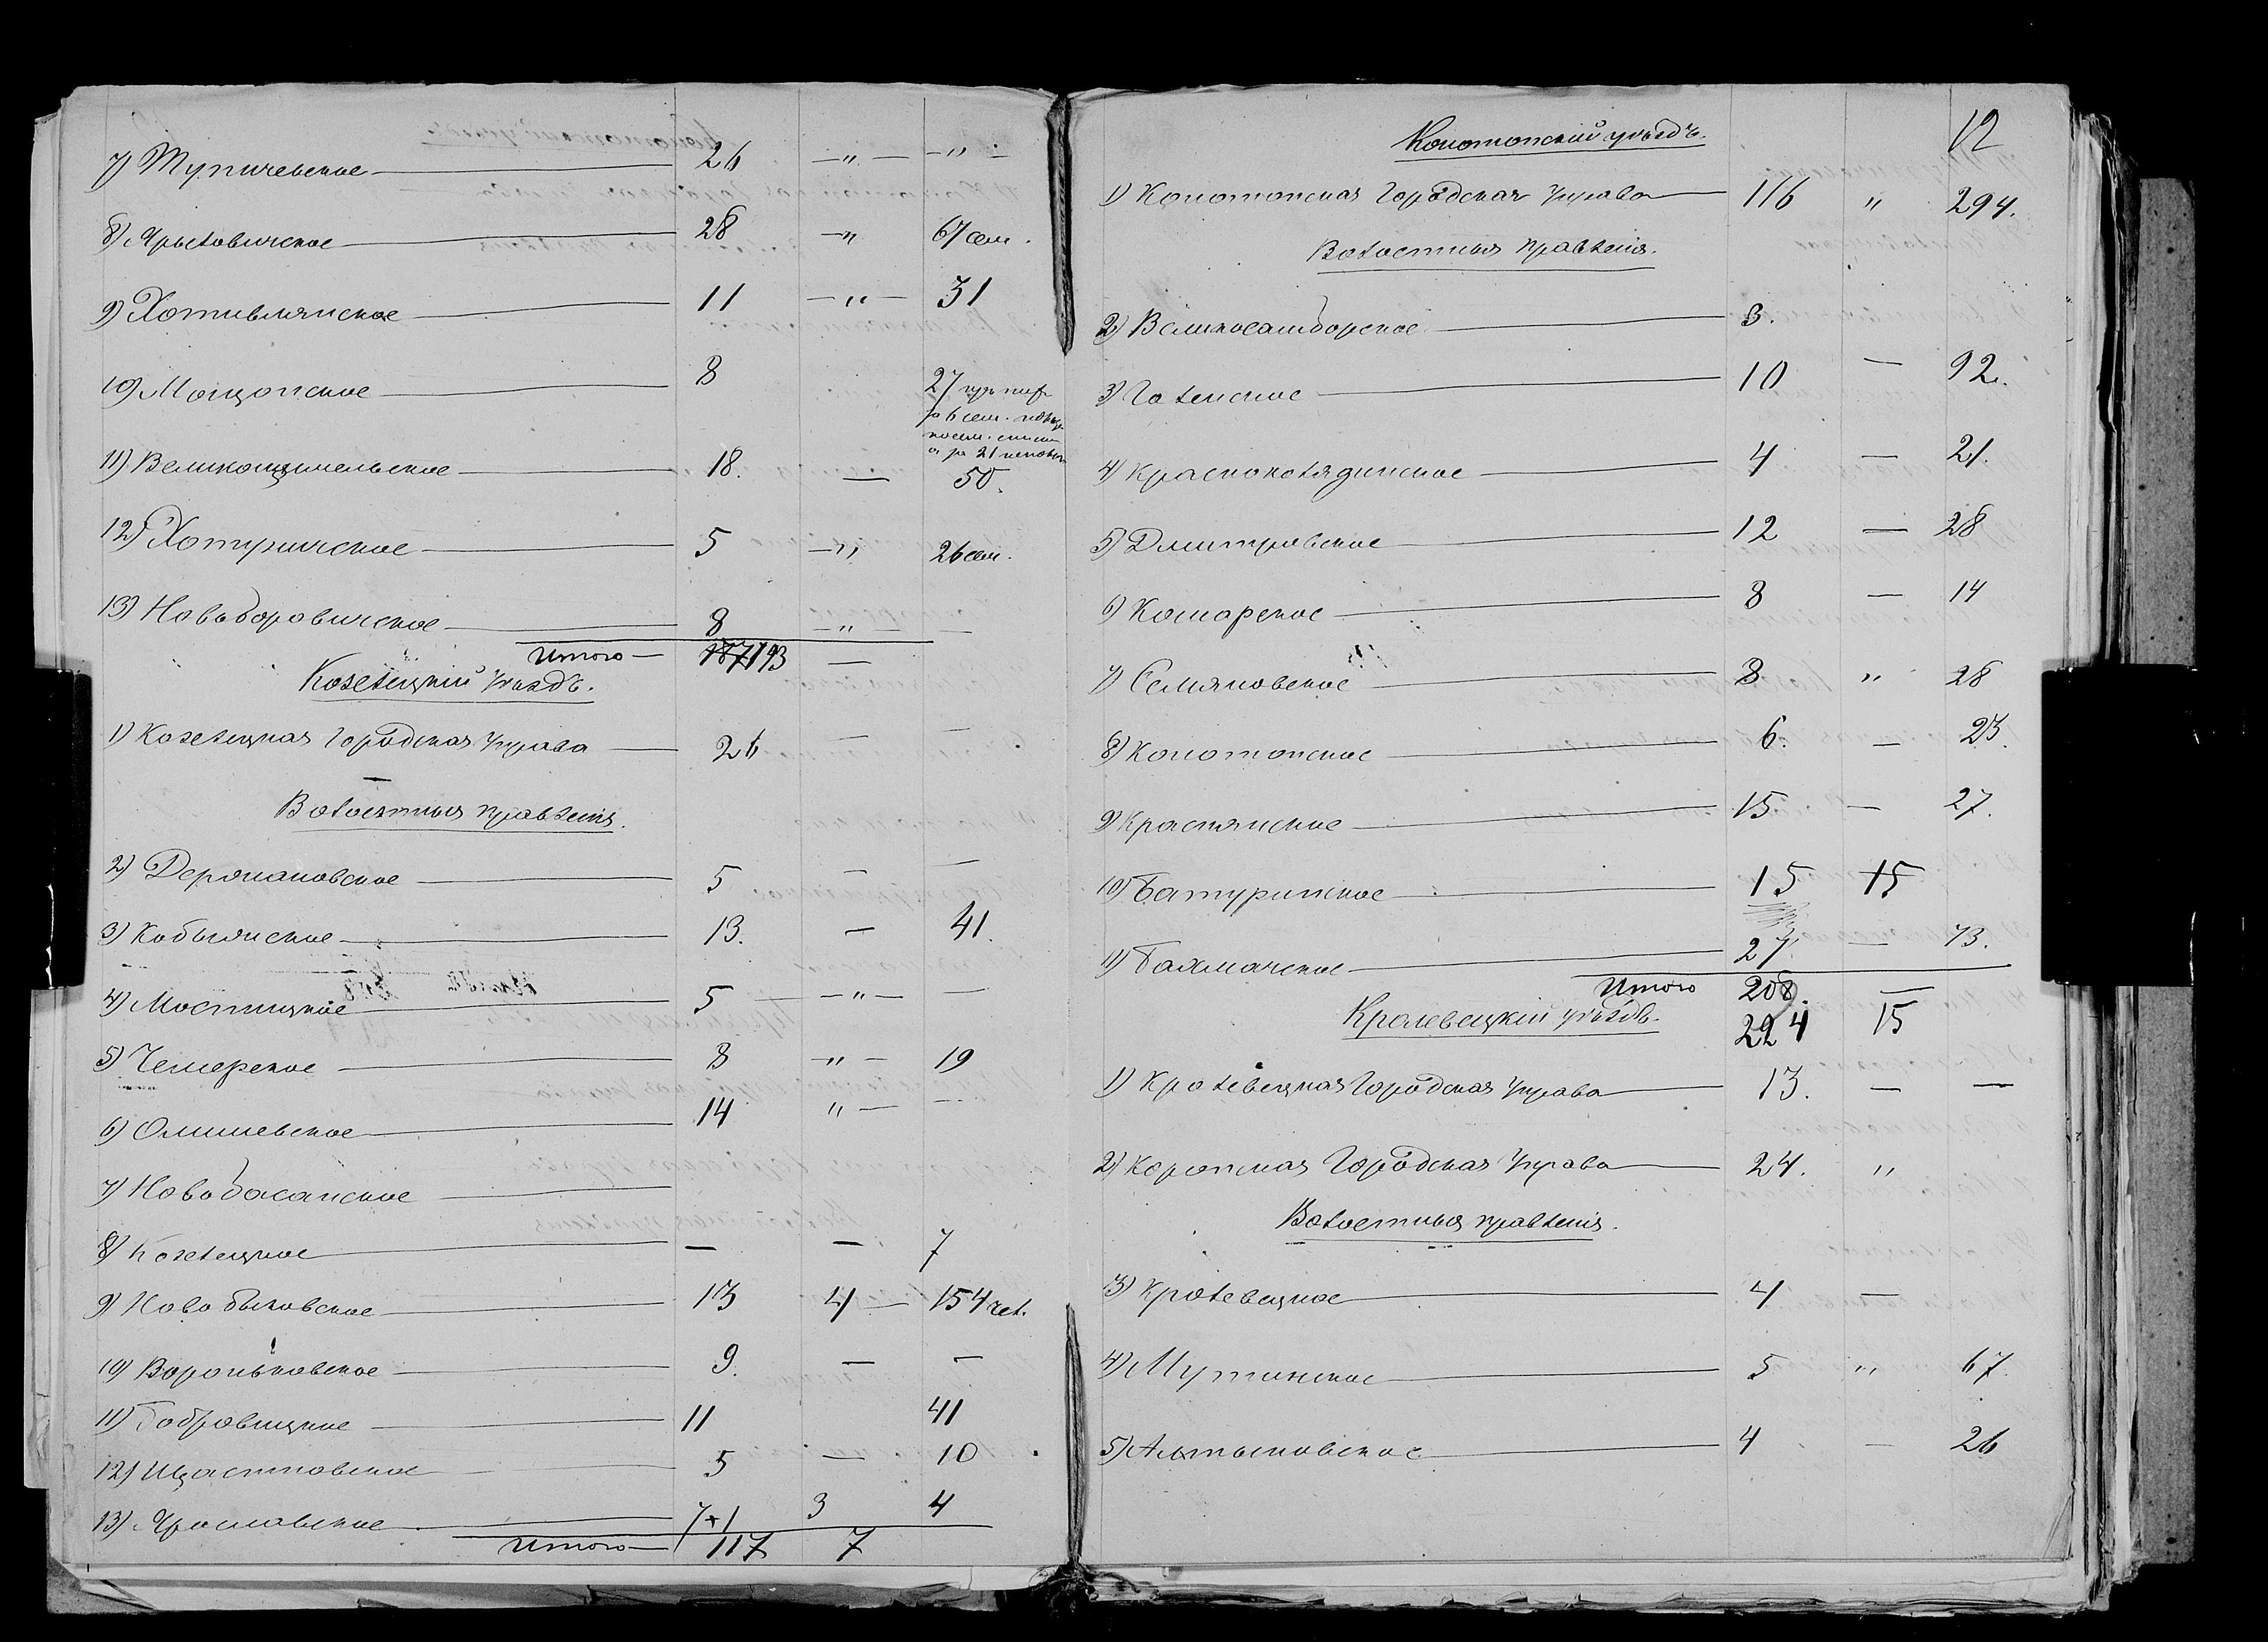 7) Тупичевское — 26 — „ — — „ —
8) Ярыловичское — 28 — „ 67 сем.
9) Хотивлянское — 11 — „ — 31
10) Мощонское — 8 27
11) Великощимельское — 18. — 50.
12) Хотуничское — 5 — „ 26 сем.
13) Новоборовичское — 8 — „ — —
Итого — 187 193 —
Козелецкій уѣздъ.
1) Козелецкая Городская Управа — 26 — —
Волостныя правленія.
2) Держановское — 5 — —
3) Кобыжское — 13. — 41.
4) Мостищкое — 5 — „ — —
5) Чемерское — 8 „ — 19
6) Олишевское — 14 „ — —
7) Новобасанское —
8) Козелецкое — — — 7
9) Новобыковское — 13 4 — 154 чел.
10) Вороньковское — 9. — —
11) Бобровицкое — 11 41
12) Щастновское — 5 — 10
13) Ярославское — 7+1 3 4
Итого — 117 7
12
Конотопскій уѣздъ.
1) Конотопская Городская Управа — 116 „ 294.
Волостныя правленія.
2) Великосамборское — 3.
3) Голенское — 10 — 92.
4) Краснолядинское — 4 — 21.
5) Дмитровское — 12 — 28
6) Кошарское — 8 — 14
7) Семяновское — 8 „ 28
8) Конотопское — 6. — 23.
9) Краснянское — 15 — 27.
10) Батуринское — 15 15
11) Бахмачское — 27. — 73.
Итого 208. —
Кролевецкій уѣздъ. 224 15
1) Кролевецкая Городская Управа — 13. — —
2) Коропская Городская Управа — 24. „
Волостныя правленія.
3) Кролевецкое — 4 —
4) Мутинское — 5 „ 67.
5) Алтыновское — 4 — 26